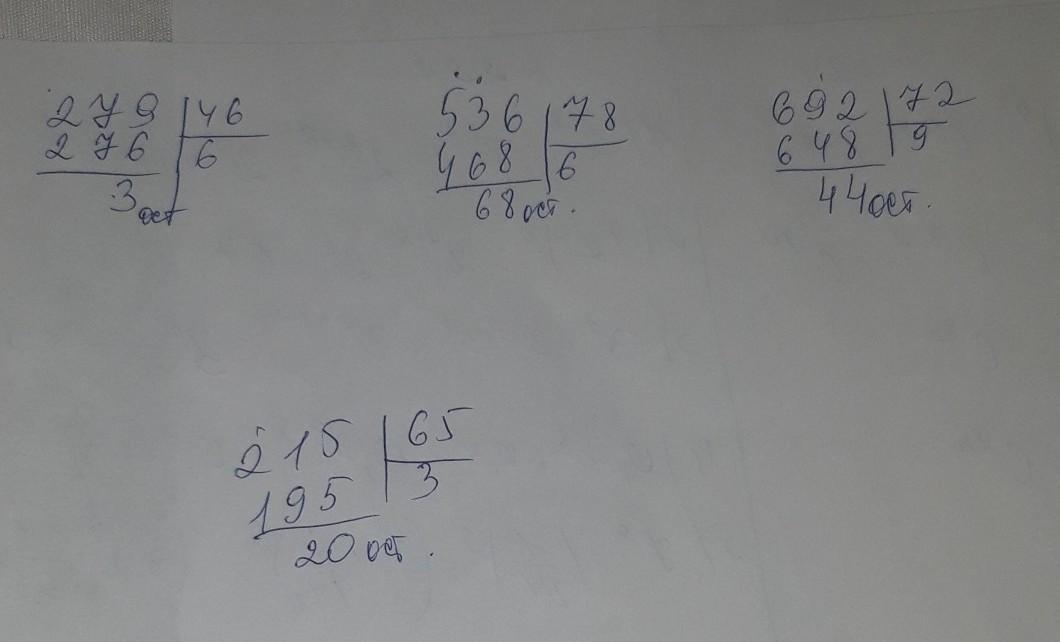 279 46
276 6
3 ост
536 78
468 6
68 ост.
692 72
648 9
44 ост.
215 65
195 3
20 ост.